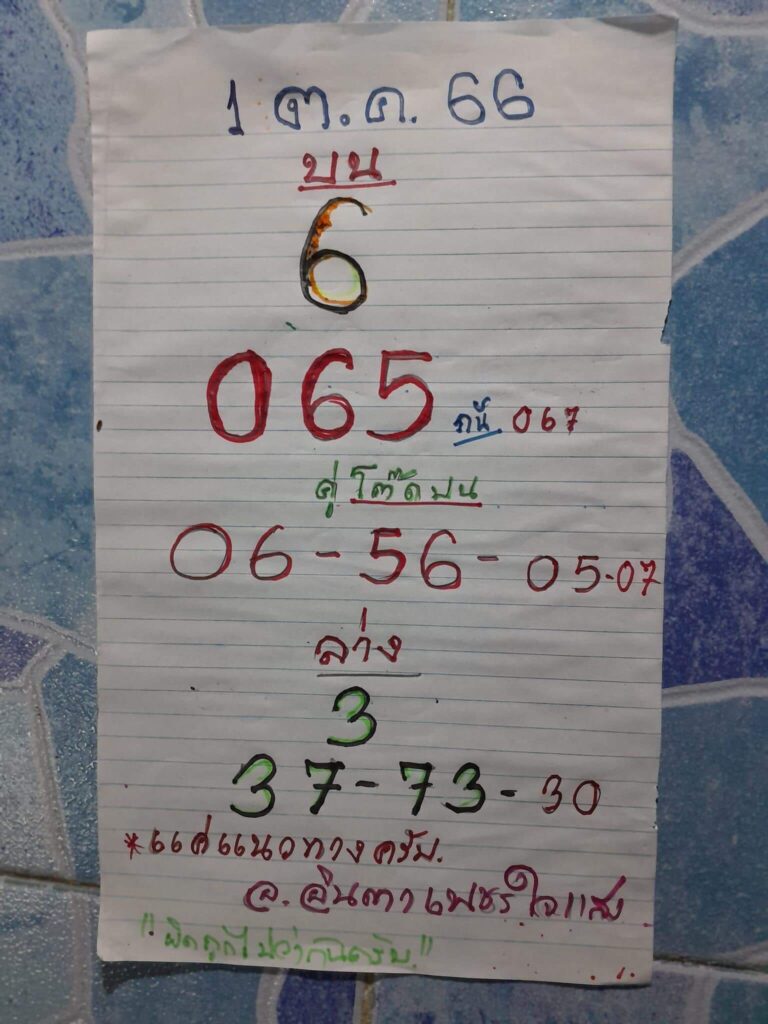 1 ต.ค. 66
บน
6
065 กนี้ 067
คู่โต๊ดบน
06 - 56 - 05-07
ล่าง
3
37 - 73 - 30
*แค่แนวทางครับ.
อ. อินตา เพชรใจแสง
"ผิดถูกไม่ว่ากันครับ"